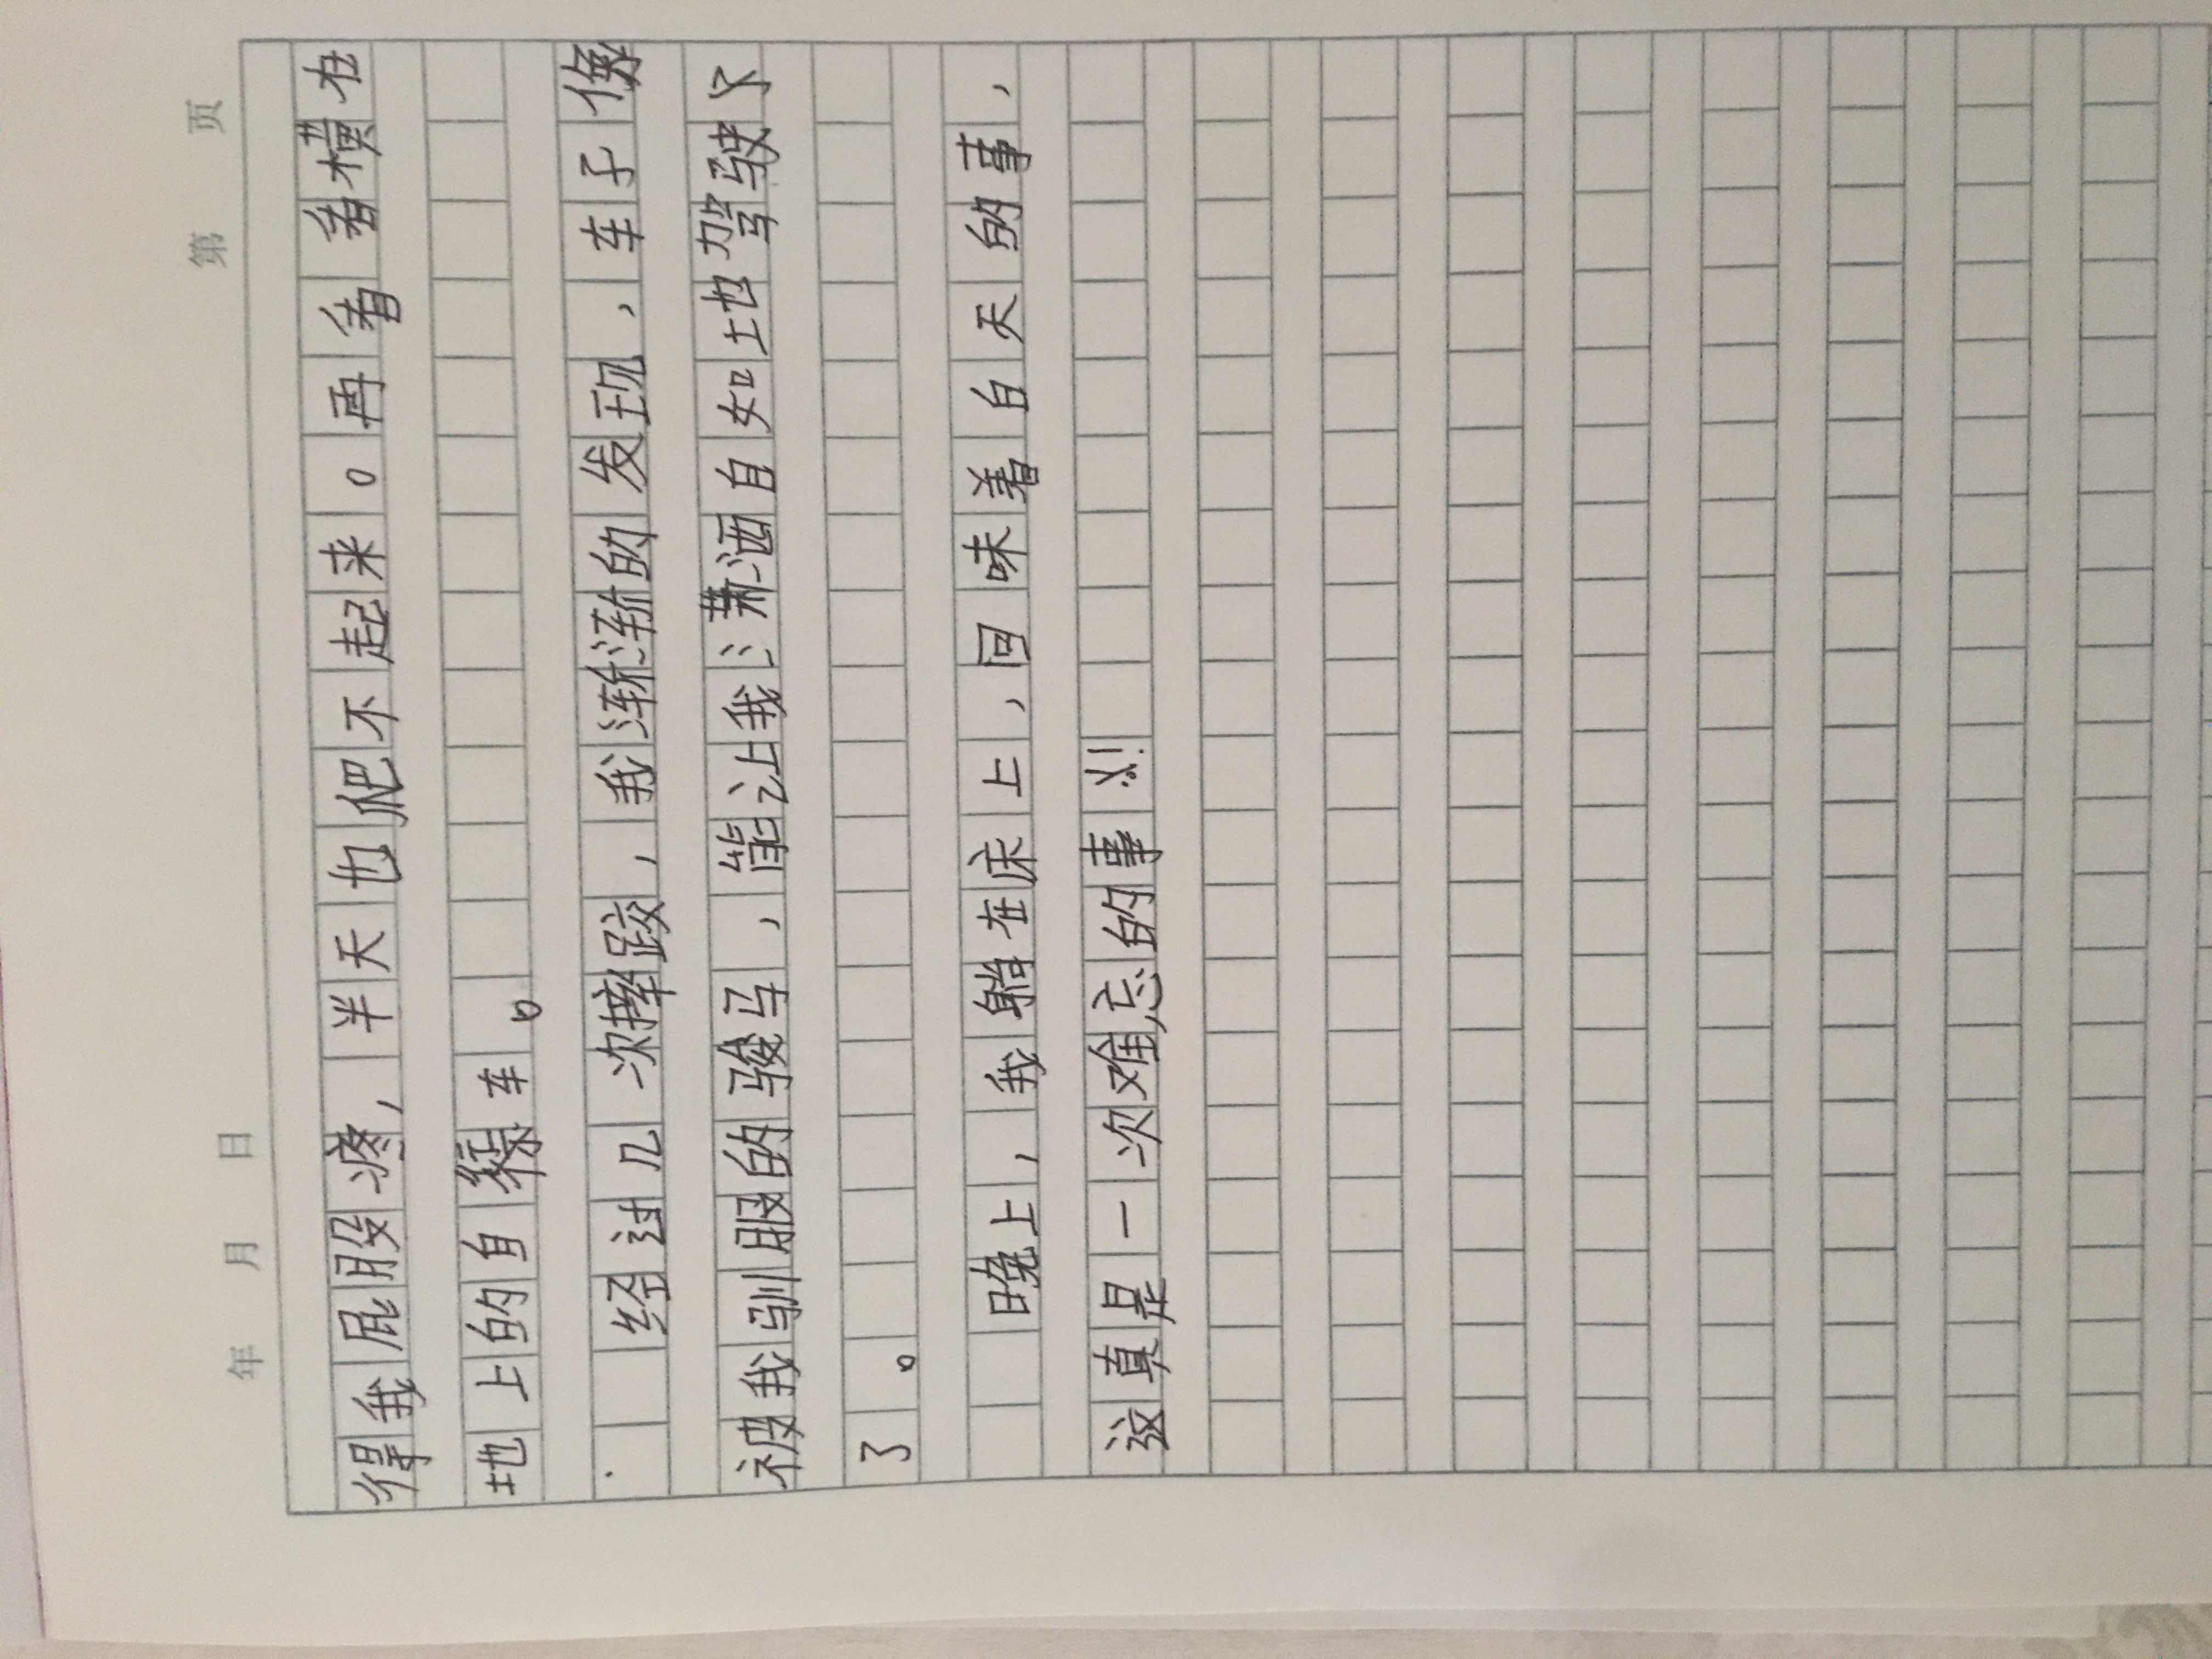 年 月 日 第 页
得我屁股疼，半天也爬不起来。再看看横在
地上的自车。
经过几次摔跤，我渐渐的发现，车子像
被我驯服的骏马，能让我潇洒自如地驾驶
了。
晚上，我躺在床上，回味着白天的事，
这真是一次难忘的事！